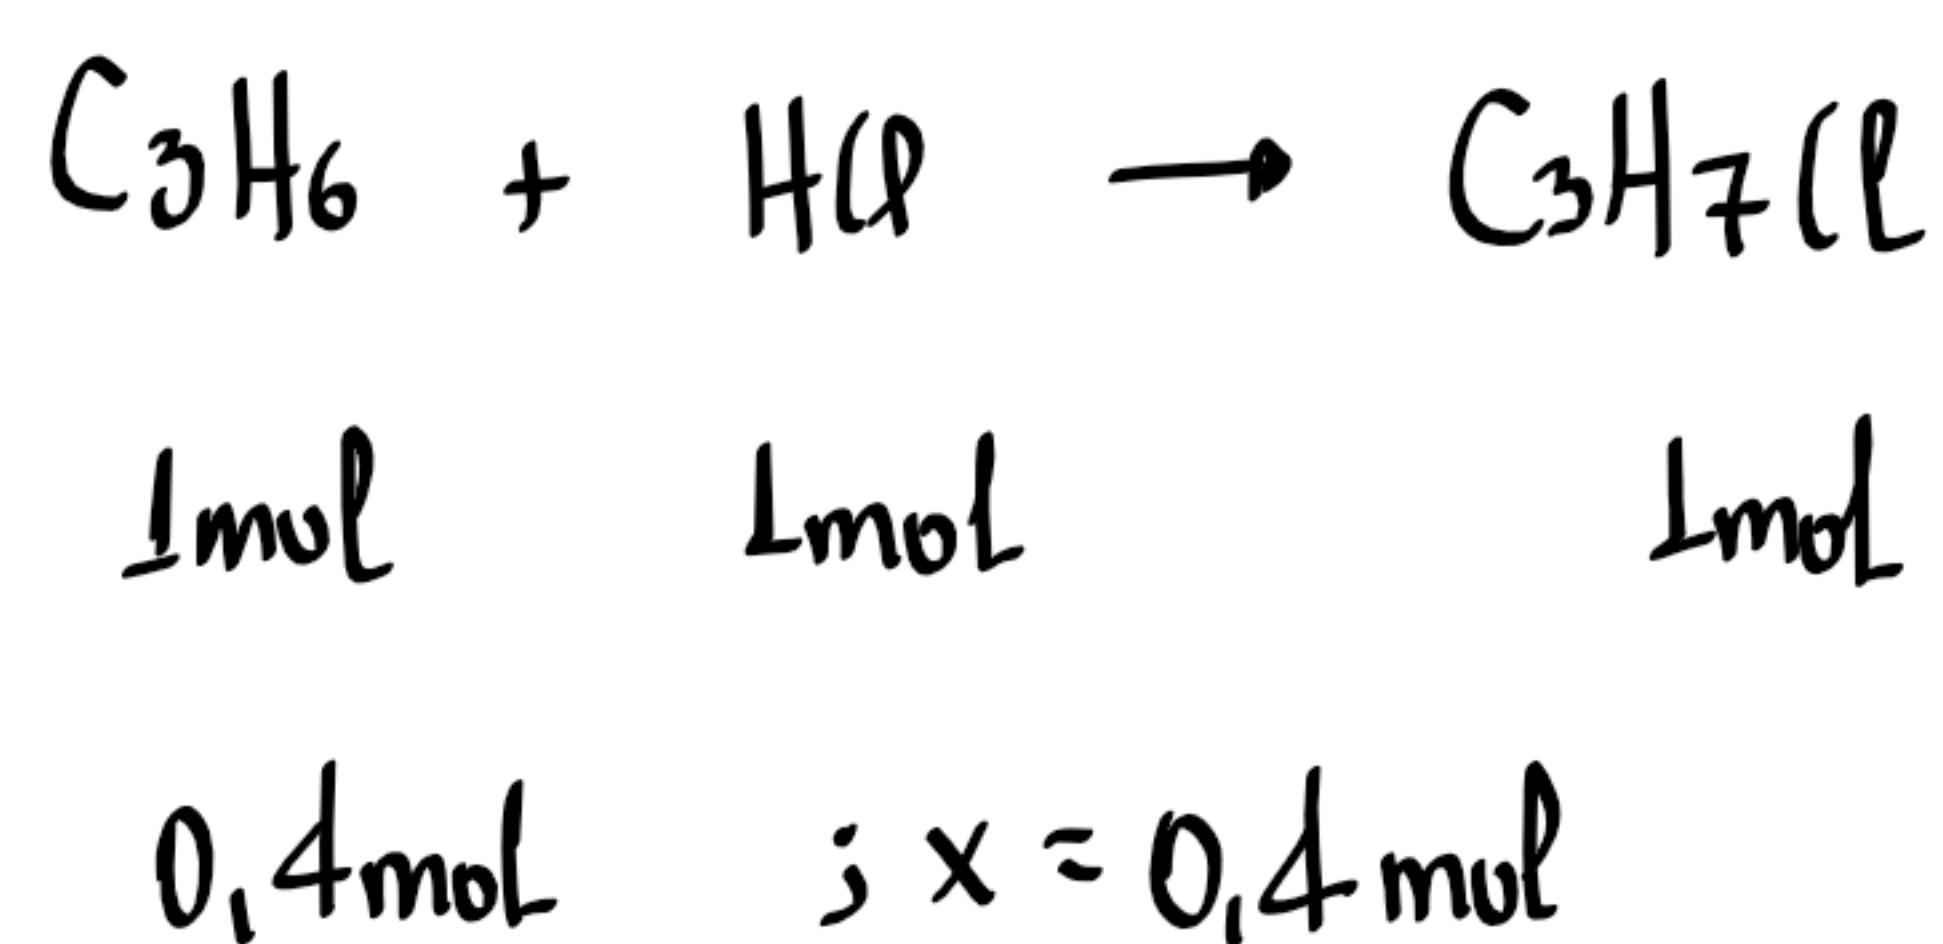 C3H6 + HCl → C3H7Cl
1mol 1mol 1mol
0,4mol ; x = 0,4mol